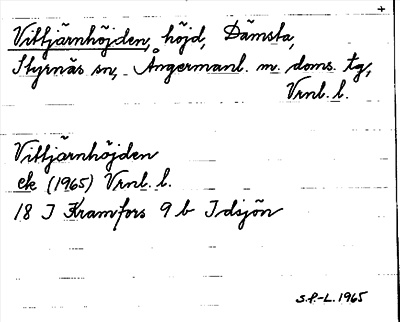 +
Vittjärnhöjden, höjd, Dämsta,
Styrnäs sn, Ångermanl. m. doms. tg,
Vrnl. l.
Vittjärnhöjden
ek (1965) Vrnl. l.
18 J Kramfors 9 b Idsjön
S.P.-L. 1965